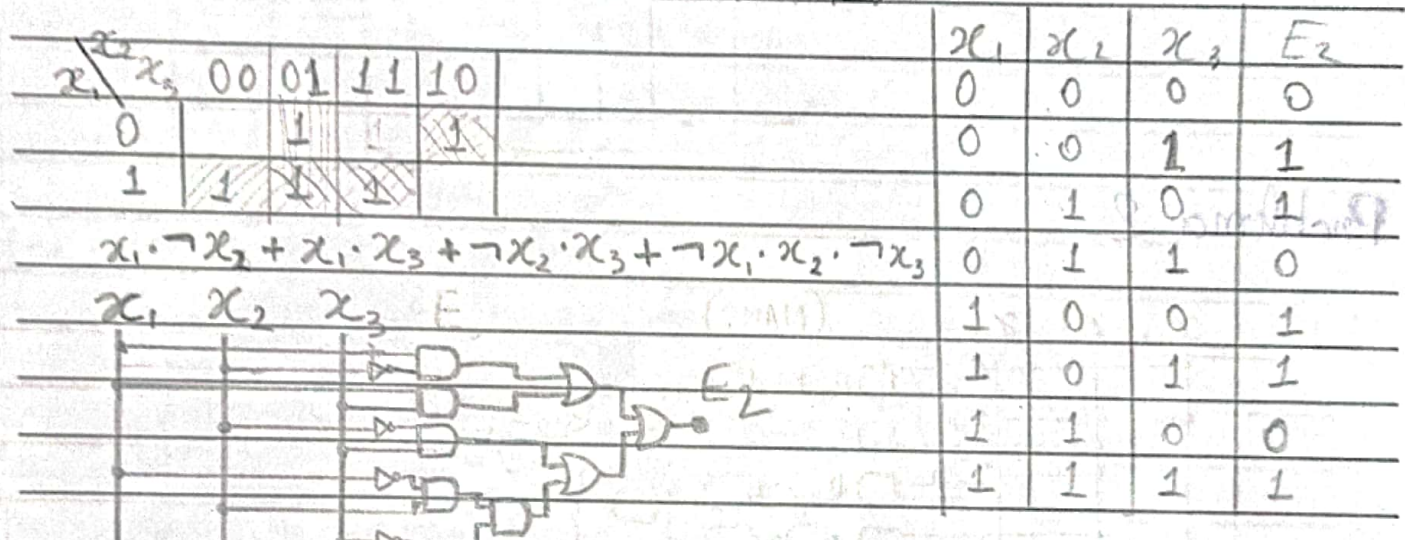 x₂
x₁ x₃ 00 01 11 10
0 1 1
1 1 1 1
x₁·¬x₂ + x₁·x₃ + ¬x₂·x₃ + ¬x₁·x₂·¬x₃
x₁ x₂ x₃
E₂
x₁ x₂ x₃ E₂
0 0 0 0
0 0 1 1
0 1 0 1
0 1 1 0
1 0 0 1
1 0 1 1
1 1 0 0
1 1 1 1